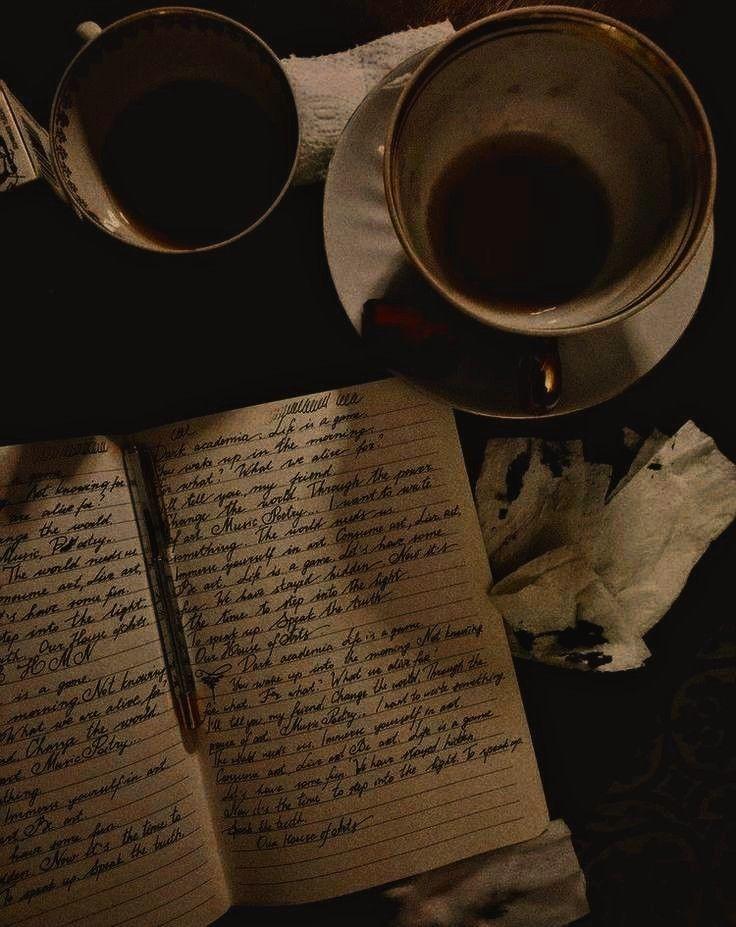 not knowing for
are alive for?
nge the world.
Music, Poetry.
The world needs us
onsume art, Live art,
t's have some fun.
tep into the light.
uth. Our House of Arts.
HMN
is a game
morning. Not knowing
What we are alive for.
nd. Change the world
art. Music Poetry...
thing
Immerse yourself in art
art. Be art.
have some fun.
dden. Now it's the time to
To speak up. Speak the truth
Dark academia. Life is a game.
You wake up in the morning.
r what? What we alive for?
I'll tell you, my friend.
Change the world. Through the power
of art. Music Poetry... I want to write
something. The world needs us.
Immerse yourself in art. Consume art, Live art,
Be art. Life is a game. Let's have some
fun. We have stayed hidden. Now it's
the time to step into the light
To speak up. Speak the truth
Our House of Arts
Dark academia. Life is a game
You wake up into the morning. Not knowing
for what. For what? What we alive for?
I'll tell you, my friend. Change the world. Through the
power of art. Music Poetry... I want to write something
The world needs us. Immerse yourself in art
Consume art, Live art. Be art. Life is a game
Let's have some fun. We have stayed hidden.
Now it's the time to step into the light. To speak up.
Speak the truth.
Our House of Arts